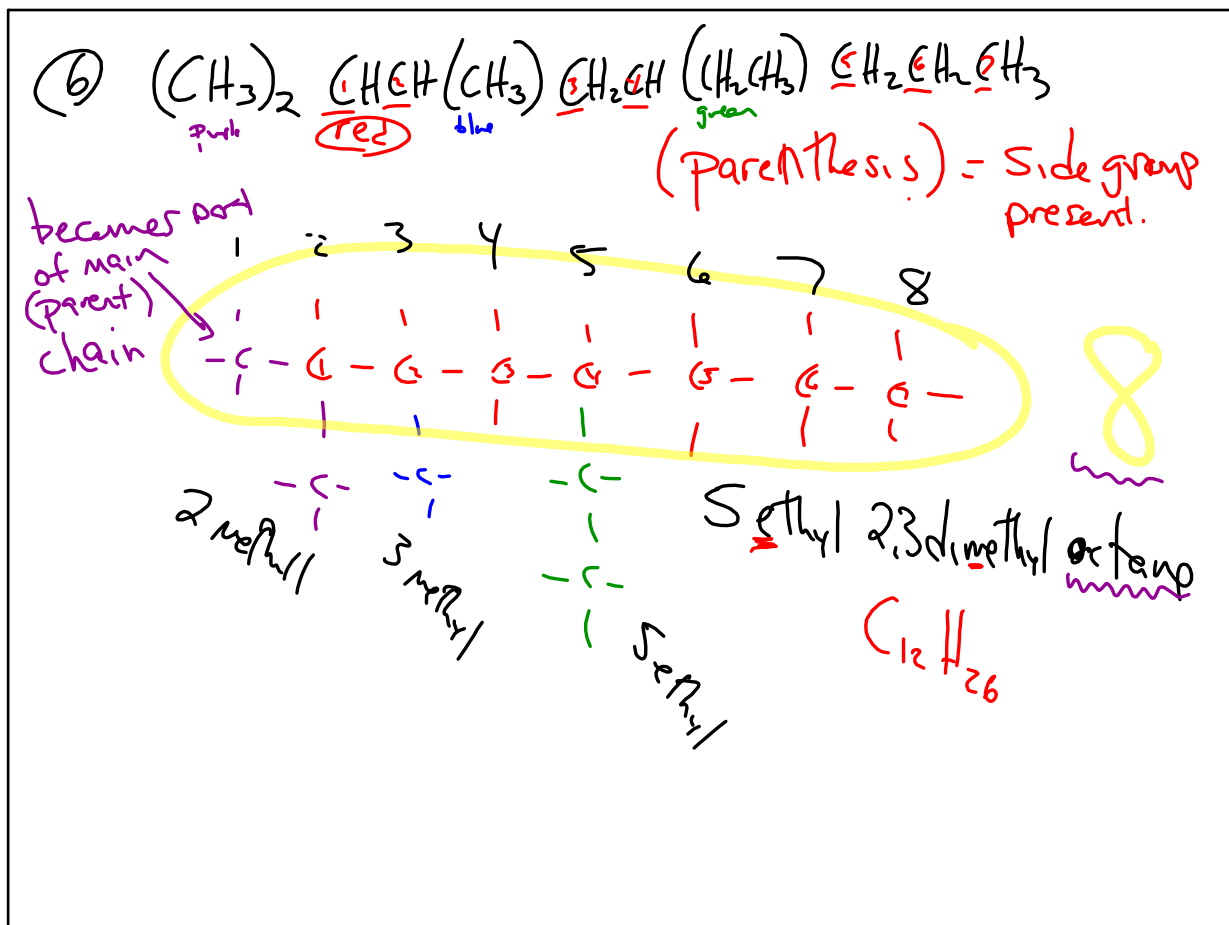 6 (CH3)2 CHCH(CH3) CH2CH (CH2CH3) CH2CH2CH3
1 2 3 4 5 6 7
purple red blue green
(parenthesis) = Side group
present.
becomes part
of main
(parent)
chain
1 2 3 4 5 6 7 8
- C - C1 - C2 - C3 - C4 - C5 - C6 - C7 -
8
- C - - C - - C -
- C -
2 methyl
3 methyl
5 ethyl
5 ethyl 2,3 dimethyl octane
C12 H26